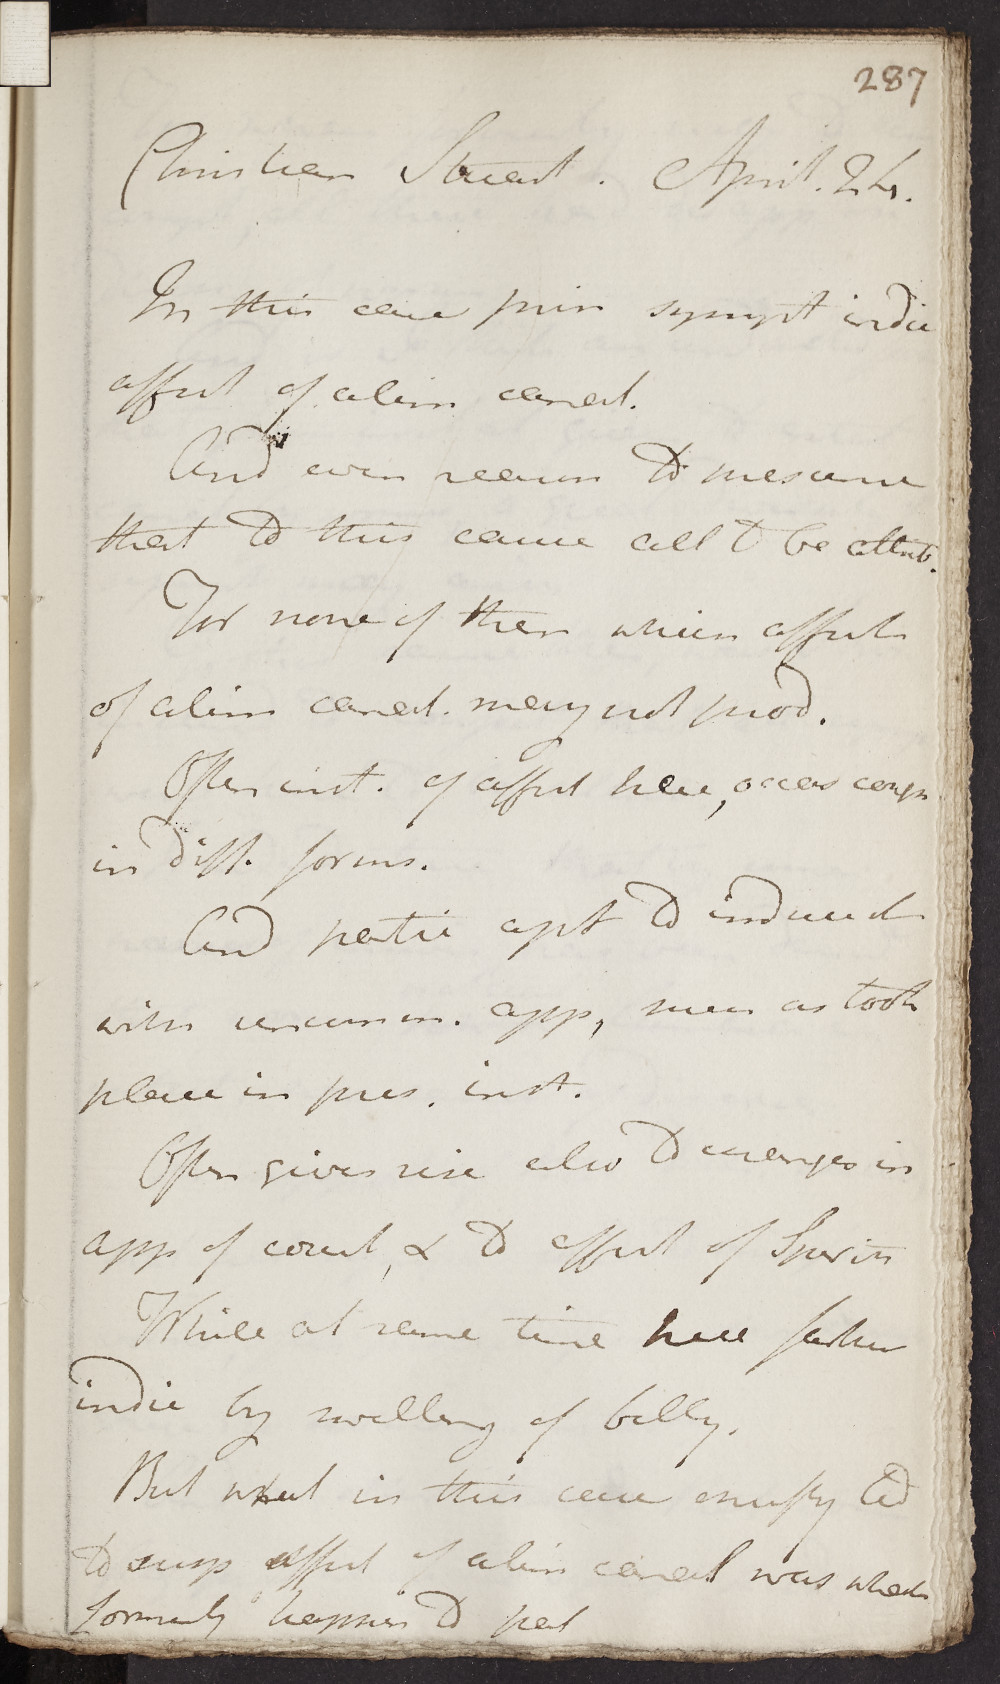 287
Christian Stuart. April. 24.
In this case prin sympt indic
affect of alim canal.
And even reason to presume
that to this cause all to be attrib.
For none of them which affect
of alim canal. may not prod.
Often inst. of affect here, occas cough
in diff. forms.
And partic apt to induce it
with uncomm. app, such as took
place in pres. inst.
Often gives rise also to changes in
app of count, & to affect of Spirits
While at same time here farther
indic by swelling of belly.
But what in this case chiefly led
to susp affect of alim canal was what
formerly happen to pat